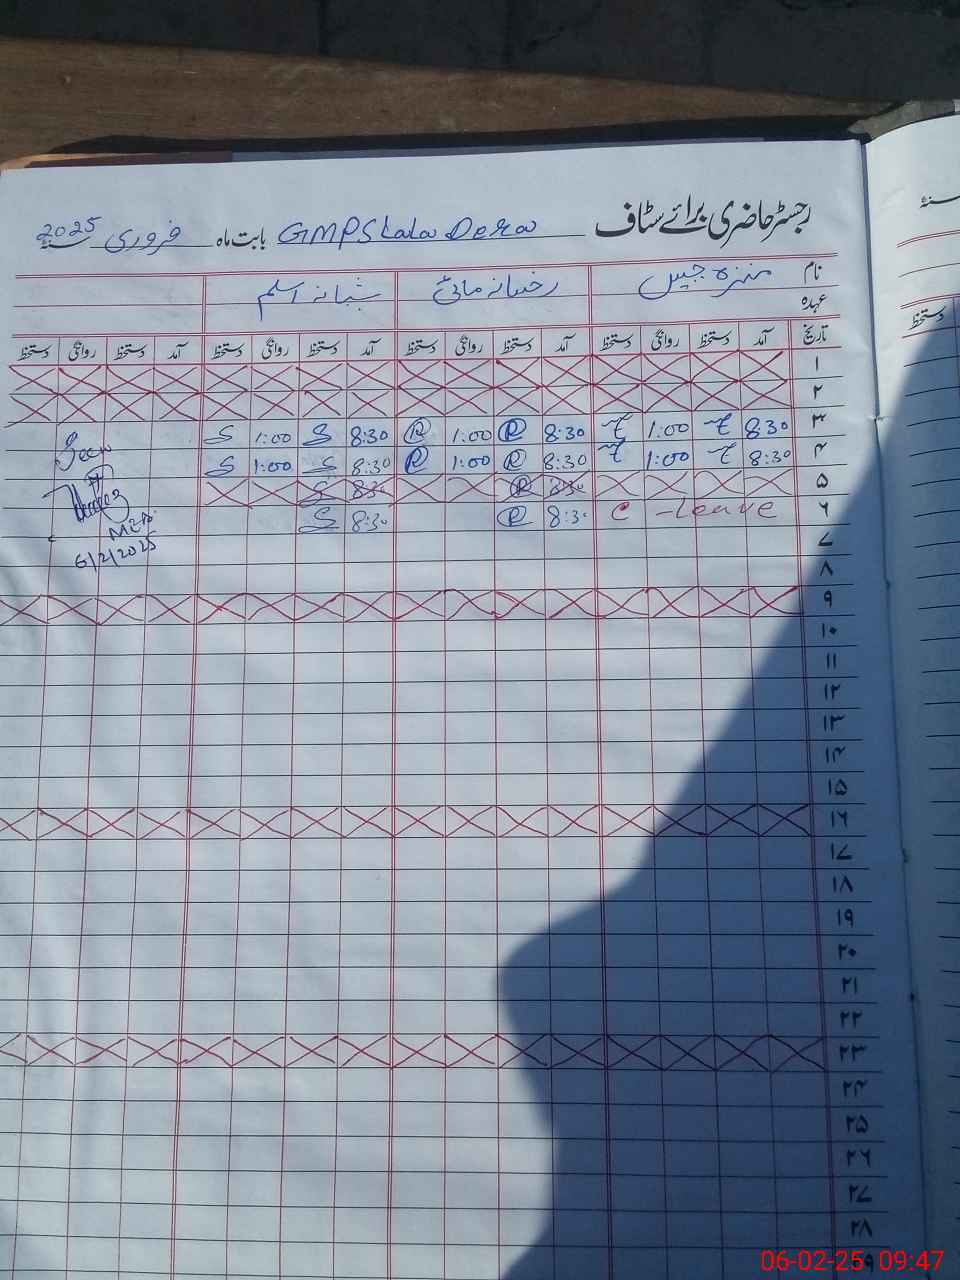 رجسٹر حاضری برائے سٹاف GMPS Lala Dera بابت ماہ فروری سنہ 2025
نام منزہ جبیں رخسانہ مائی شبانہ اسلم
عہدہ
تاریخ آمد دستخط روانگی دستخط آمد دستخط روانگی دستخط آمد دستخط روانگی دستخط آمد دستخط روانگی دستخط
۱
۲
۳ 8:30 1:00 8:30 R 1:00 R 8:30 S 1:00 S
۴ 8:30 1:00 8:30 R 1:00 R 8:30 S 1:00 S
۵ 8:30 R 8:30 S
۶ C-leave 8:30 R 8:30 S
Seen
MEA
6/2/2025
۷
۸
۹
۱۰
۱۱
۱۲
۱۳
۱۴
۱۵
۱۶
۱۷
۱۸
۱۹
۲۰
۲۱
۲۲
۲۳
۲۴
۲۵
۲۶
۲۷
۲۸
سنہ
دستخط
06-02-25 09:47